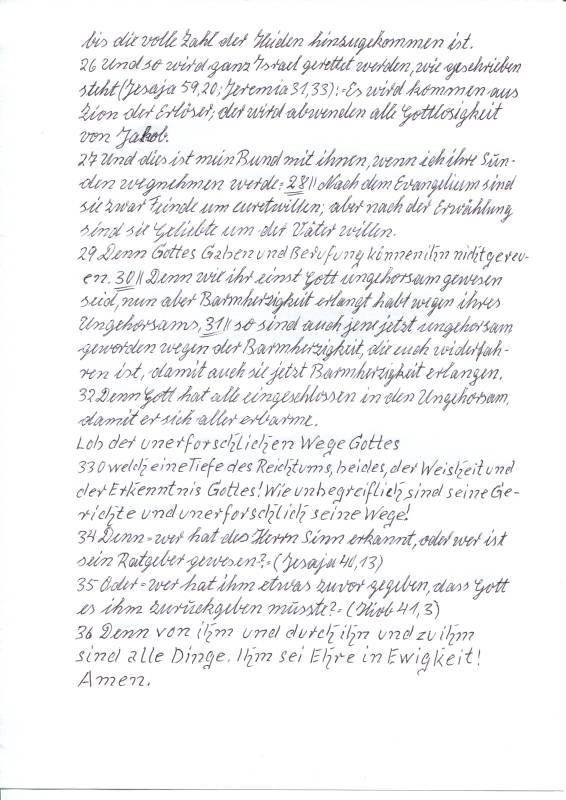 bis die volle Zahl der Heiden hinzugekommen ist.
26 Und so wird ganz Israel gerettet werden, wie geschrieben
steht (Jesaja 59,20; Jeremia 31,33): »Es wird kommen aus
Zion der Erlöser; der wird abwenden alle Gottlosigkeit
von Jakob.
27 Und dies ist mein Bund mit ihnen, wenn ich ihre Sün-
den wegnehmen werde.« 28 || Nach dem Evangelium sind
sie zwar Feinde um euretwillen; aber nach der Erwählung
sind sie Geliebte um der Väter willen.
29 Denn Gottes Gaben und Berufung können ihn nicht gereu-
en. 30 || Denn wie ihr einst Gott ungehorsam gewesen
seid, nun aber Barmherzigkeit erlangt habt wegen ihres
Ungehorsams, 31 || so sind auch jene jetzt ungehorsam
geworden wegen der Barmherzigkeit, die euch widerfah-
ren ist, damit auch sie jetzt Barmherzigkeit erlangen.
32 Denn Gott hat alle eingeschlossen in den Ungehorsam,
damit er sich aller erbarme.
Lob der unerforschlichen Wege Gottes
33 O welch eine Tiefe des Reichtums, beides, der Weisheit und
der Erkenntnis Gottes! Wie unbegreiflich sind seine Ge-
richte und unerforschlich seine Wege!
34 Denn »wer hat des Herrn Sinn erkannt, oder wer ist
sein Ratgeber gewesen?« (Jesaja 40,13)
35 Oder »wer hat ihm etwas zuvor gegeben, dass Gott
es ihm zurückgeben müsste?« (Hiob 41,3)
36 Denn von ihm und durch ihn und zu ihm
sind alle Dinge. Ihm sei Ehre in Ewigkeit!
Amen.